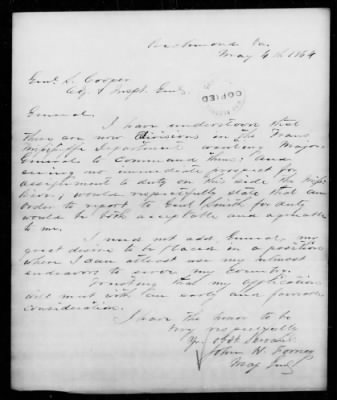 Richmond Va.
May 4th 1864
Genl S. Cooper
Adj. & Inspt. Genl.
COPIED
General,
I have understood that
there are now Divisions in the Trans
Mississippi Department wanting Major
Generals to Command them; and
seeing no immediate prospect for
assignment to duty on this side the Miss.
River, would respectfully state that an
order to report to Genl Smith for duty
would be both acceptable and agreeable
to me.
I need not add General my
great desire to be placed in a position
where I can at least use my utmost
endeavors to serve my Country.
Trusting that my application
will meet with an early and favorable
consideration.
I have the honor to be
Very respectfully
Yr. obt Servant
John H. Forney
Maj Genl